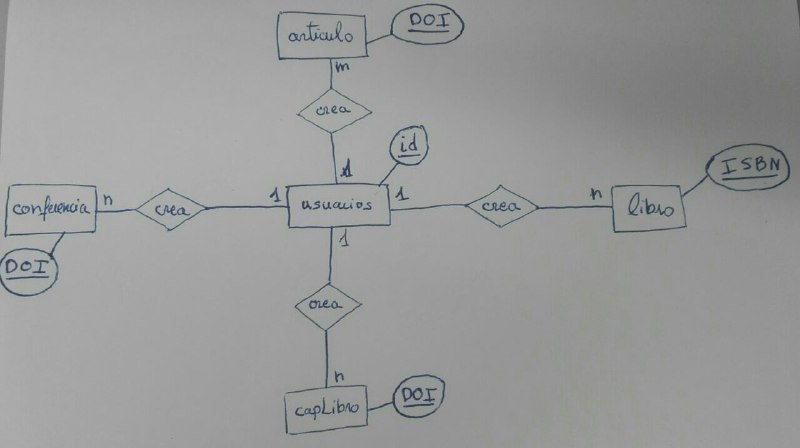 articulo
DOI
m
crea
1
id
conferencia
n
crea
1
usuarios
1
crea
n
libro
ISBN
DOI
1
crea
n
capLibro
DOI